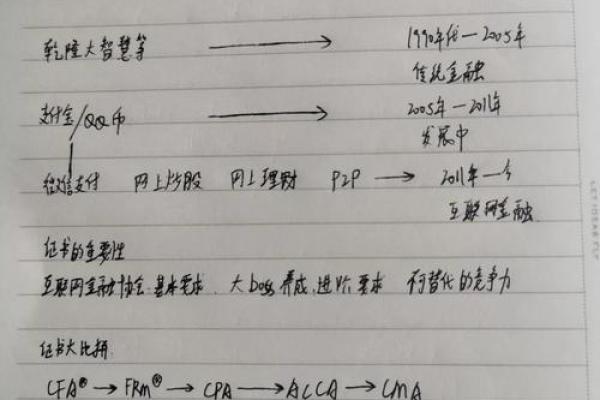 乾隆大智慧等 → 1990年代—2005年
传统金融
支付宝/QQ币 → 2005年—2011年
发展中
微信支付 网上炒股 网上理财 P2P → 2011年—今
互联网金融
证书的重要性
互联网金融协会.基本要求. 大boss养成.进阶要求 不可替代的竞争力
证书大比拼
CFA® → FRM® → CPA → ACCA → CMA